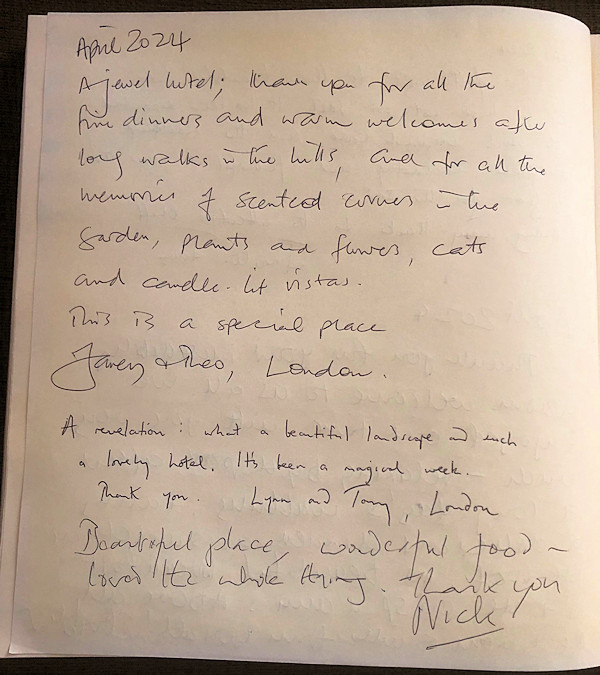 April 2024
A jewel hotel; thank you for all the
fine dinners and warm welcomes after
long walks in the hills, and for all the
memories of scented corners in the
garden, plants and flowers, cats
and candle-lit vistas.
This is a special place
& Theo, London.
A revelation: what a beautiful landscape and such
a lovely hotel. It's been a magical week.
Thank you. Lynn and Tony, London
Beautiful place, wonderful food –
loved the whole thing. Thank you
Nick